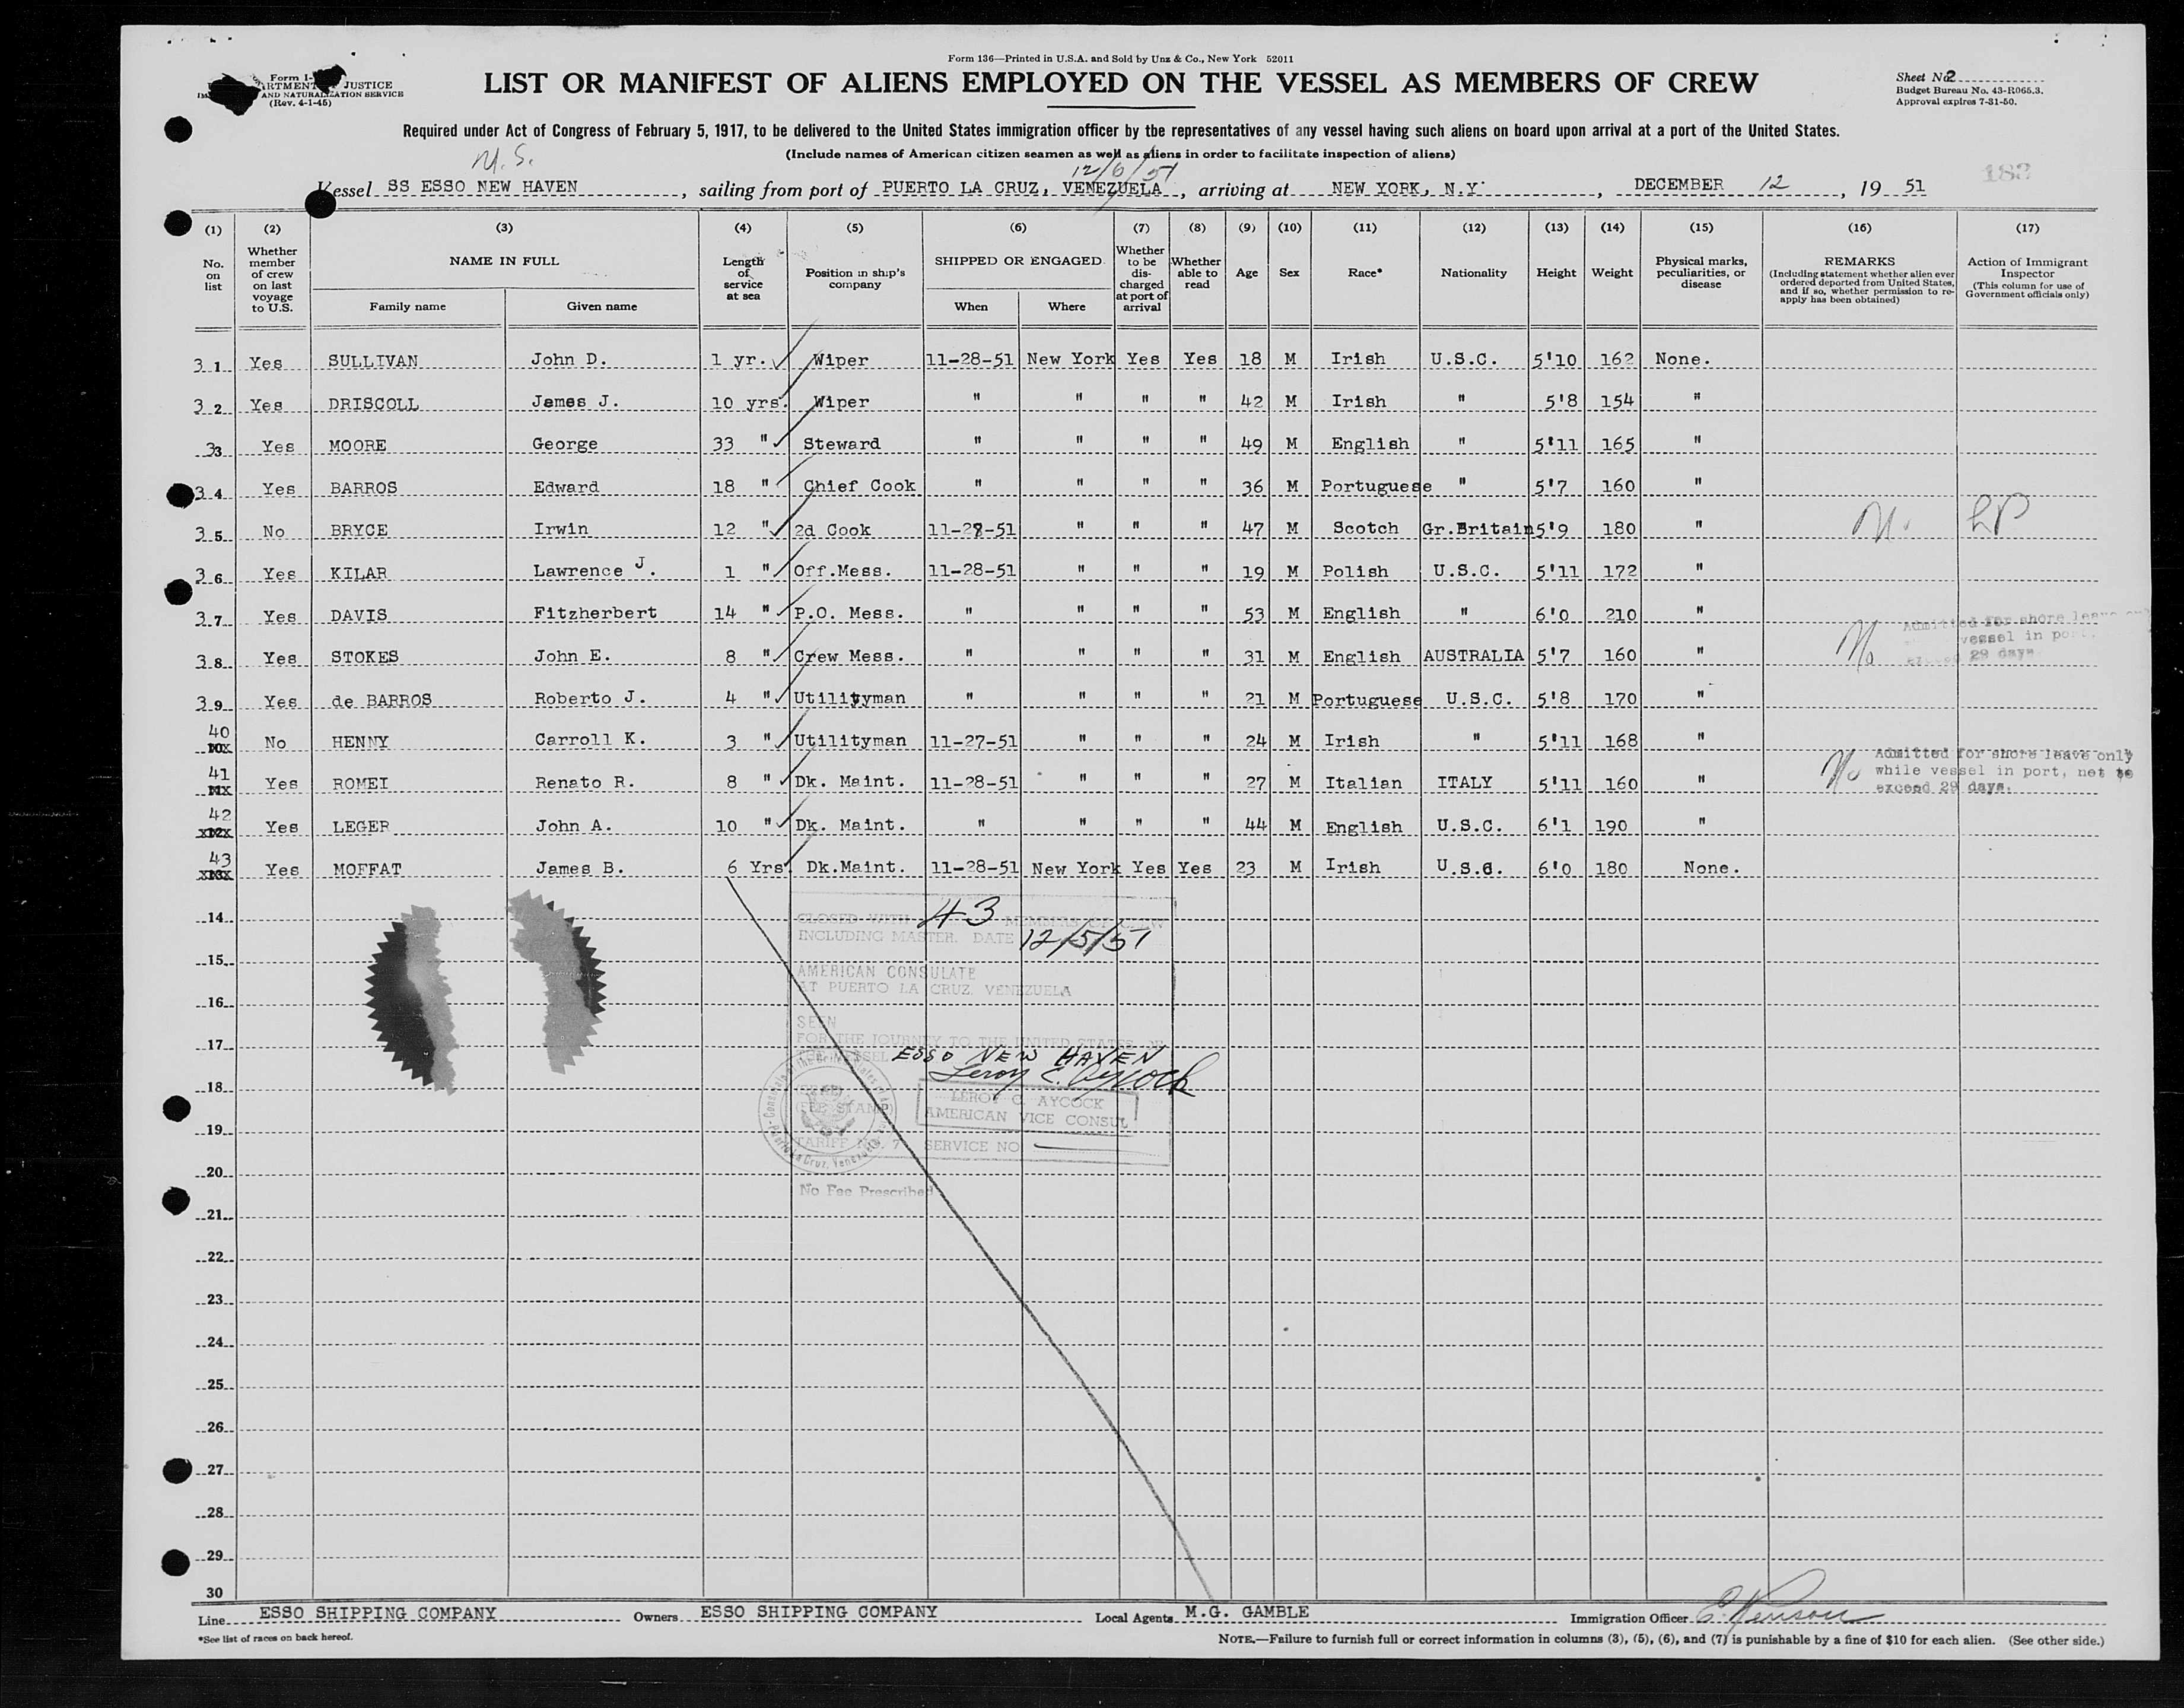 Form 136—Printed in U.S.A. and Sold by Unz & Co., New York 52011
Form I-
JUSTICE
AND NATURALIZATION SERVICE
(Rev. 4-1-45)
LIST OR MANIFEST OF ALIENS EMPLOYED ON THE VESSEL AS MEMBERS OF CREW
Sheet No. 2
Budget Bureau No. 43-R065.3.
Approval expires 7-31-50.
Required under Act of Congress of February 5, 1917, to be delivered to the United States immigration officer by the representatives of any vessel having such aliens on board upon arrival at a port of the United States.
(Include names of American citizen seamen as well as aliens in order to facilitate inspection of aliens)
M.S.
12/6/51
183
Vessel SS ESSO NEW HAVEN, sailing from port of PUERTO LA CRUZ, VENEZUELA, arriving at NEW YORK, N.Y., DECEMBER 12, 19 51
(1) (2) (3) (4) (5) (6) (7) (8) (9) (10) (11) (12) (13) (14) (15) (16) (17)
No. on list
Whether member of crew on last voyage to U.S.
NAME IN FULL
Family name
Given name
Length of service at sea
Position in ship's company
SHIPPED OR ENGAGED
When
Where
Whether to be discharged at port of arrival
Whether able to read
Age
Sex
Race*
Nationality
Height
Weight
Physical marks, peculiarities, or disease
REMARKS
(Including statement whether alien ever ordered deported from United States, and if so, whether permission to reapply has been obtained)
Action of Immigrant Inspector
(This column for use of Government officials only)
31 Yes SULLIVAN John D. 1 yr. Wiper 11-28-51 New York Yes Yes 18 M Irish U.S.C. 5'10 162 None.
32 Yes DRISCOLL James J. 10 yrs. Wiper " " " " 42 M Irish " 5'8 154 "
33 Yes MOORE George 33 " Steward " " " " 49 M English " 5'11 165 "
34 Yes BARROS Edward 18 " Chief Cook " " " " 36 M Portuguese " 5'7 160 "
35 No BRYCE Irwin 12 " 2d Cook 11-28-51 " " " 47 M Scotch Gr.Britain 5'9 180 "
36 Yes KILAR Lawrence J. 1 " Off.Mess. 11-28-51 " " " 19 M Polish U.S.C. 5'11 172 "
37 Yes DAVIS Fitzherbert 14 " P.O. Mess. " " " " 53 M English " 6'0 210 "
38 Yes STOKES John E. 8 " Crew Mess. " " " " 31 M English AUSTRALIA 5'7 160 " No Admitted for shore leave only vessel in port, exceed 29 days
39 Yes de BARROS Roberto J. 4 " Utilityman " " " " 21 M Portuguese U.S.C. 5'8 170 "
40 No HENNY Carroll K. 3 " Utilityman 11-27-51 " " " 24 M Irish " 5'11 168 "
41 Yes ROMEI Renato R. 8 " Dk. Maint. 11-28-51 " " " 27 M Italian ITALY 5'11 160 " No Admitted for shore leave only while vessel in port, not to exceed 29 days.
42 Yes LEGER John A. 10 " Dk. Maint. " " " " 44 M English U.S.C. 6'1 190 "
43 Yes MOFFAT James B. 6 Yrs. Dk.Maint. 11-28-51 New York Yes Yes 23 M Irish U.S.C. 6'0 180 None.
14
CLOSED WITH 43 MEMBERS OF CREW
INCLUDING MASTER. DATE 12/5/51
15
AMERICAN CONSULATE
AT PUERTO LA CRUZ, VENEZUELA
16
SEEN
FOR THE JOURNEY TO THE UNITED STATES OF
17
THE VESSEL ESSO NEW HAVEN
Leroy C. Aycock
18
(FEE STAMP)
LEROY C. AYCOCK
AMERICAN VICE CONSUL
19
TARIFF NO. 7 SERVICE NO.
20
No Fee Prescribed
21
22
23
24
25
26
27
28
29
30
Line ESSO SHIPPING COMPANY Owners ESSO SHIPPING COMPANY Local Agents M.G. GAMBLE Immigration Officer
*See list of races on back hereof.
NOTE.—Failure to furnish full or correct information in columns (3), (5), (6), and (7) is punishable by a fine of $10 for each alien. (See other side.)